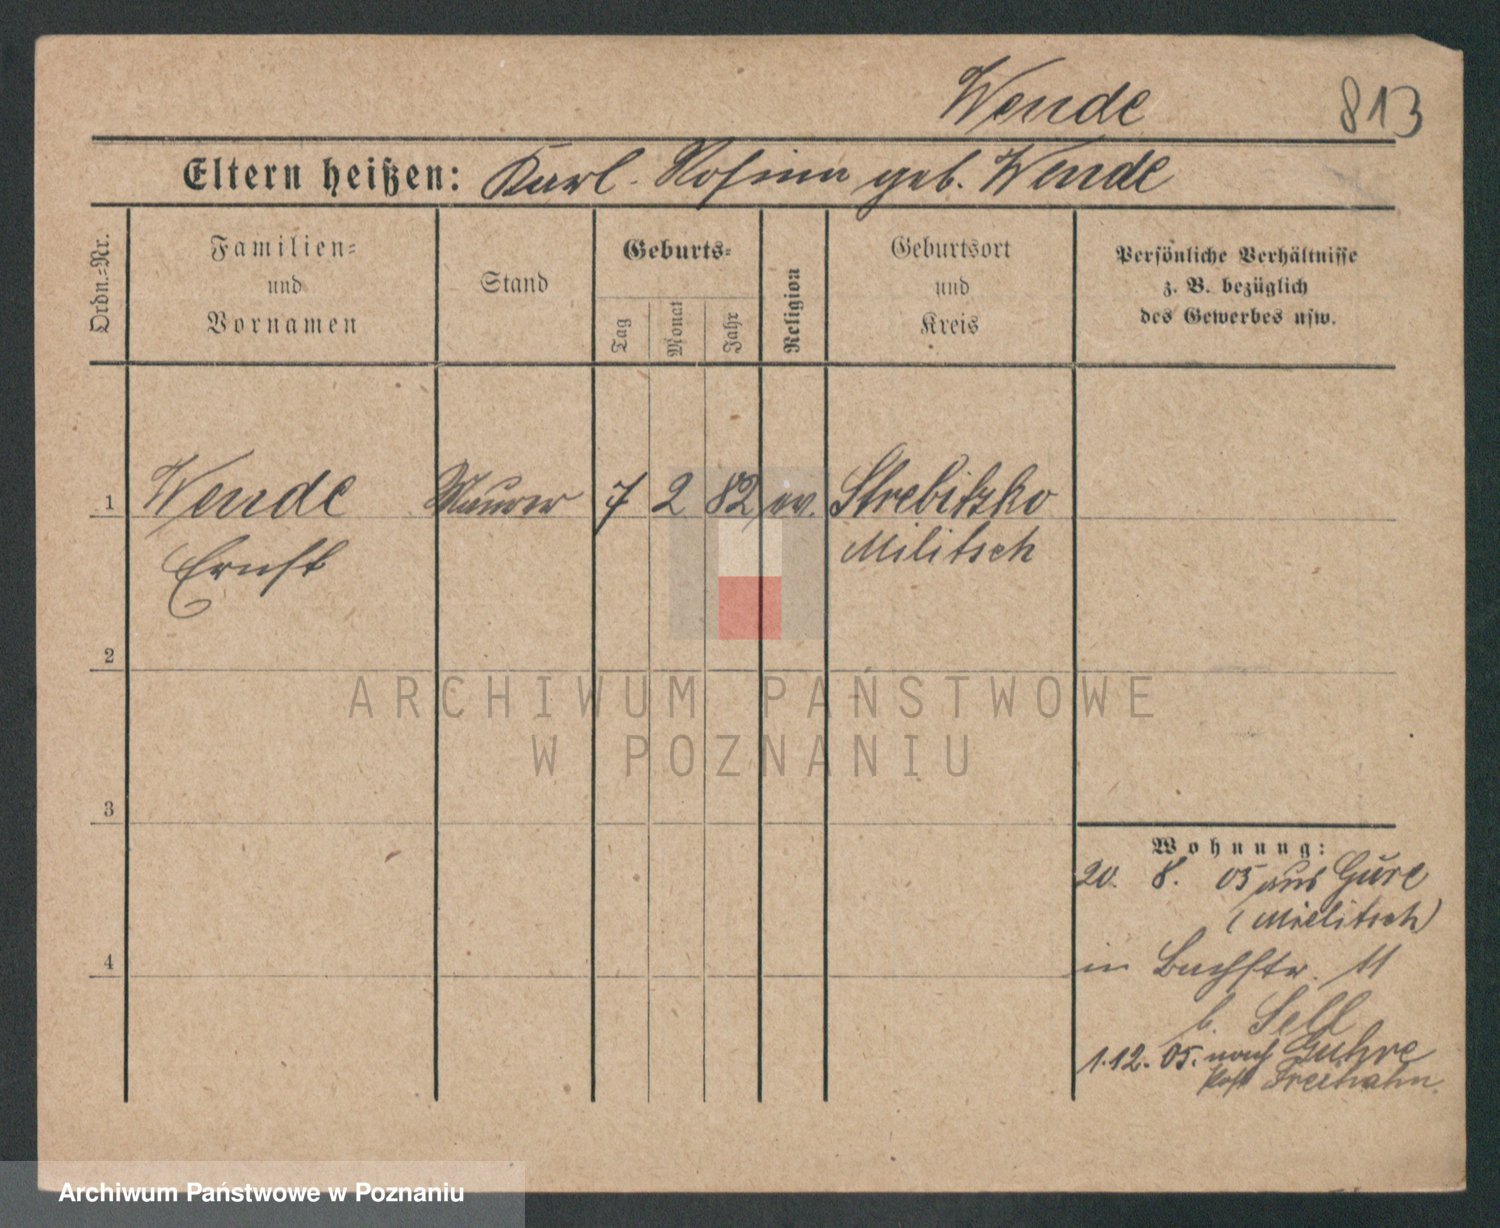 Wende
813
Eltern heißen: Karl - Rosina geb. Wende
Ordn.-Nr.
Familien-
und
Vornamen
Stand
Geburts-
Tag
Monat
Jahr
Religion
Geburtsort
und
Kreis
Persönliche Verhältnisse
z. B. bezüglich
des Gewerbes usw.
1 Wende Maurer 7 2 82 ev. Strebitzko
Ernst Militsch
2
ARCHIWUM PAŃSTWOWE
W POZNANIU
3
Wohnung:
20. 8. 05 aus Gure
(Mielitsch)
4
in Bachstr. 11
b. Sell
1.12.05. nach Guhre
Post Freihahn.
Archiwum Państwowe w Poznaniu